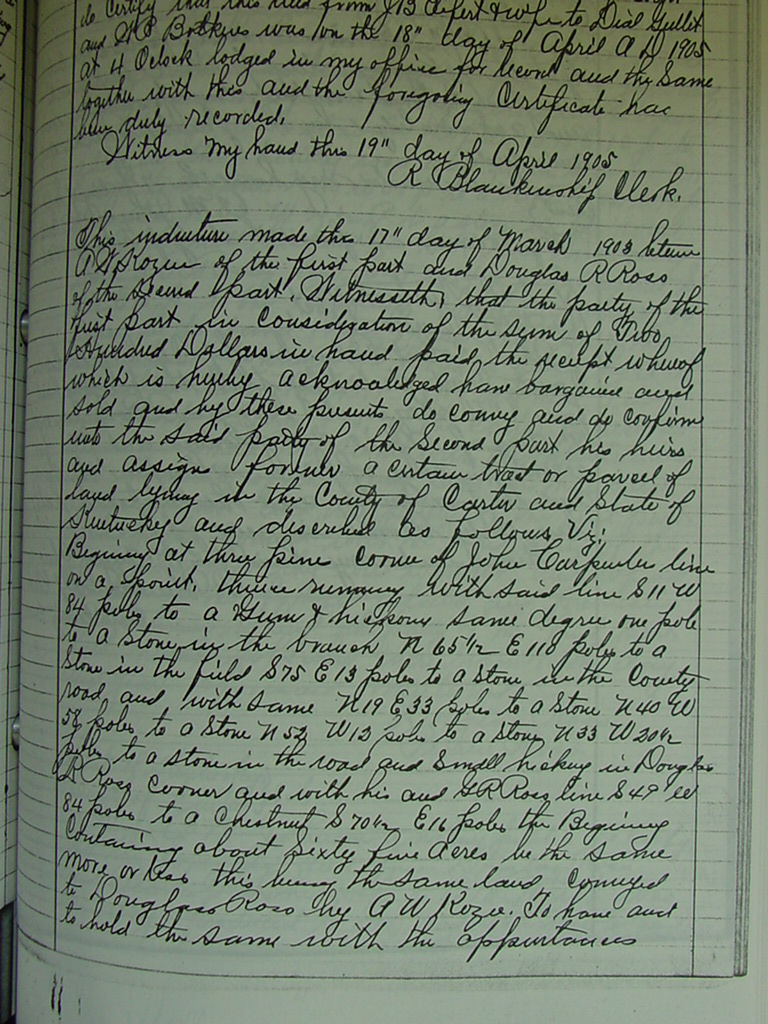 do Certify that this deed from J B Sefert & wife to Dial Gullit
and Botkins was on the 18" day of April A D 1905
at 4 Oclock lodged in my office for record and the Same
together with this and the foregoing Certificate has
been duly recorded.
Witness my hand this 19" day of April 1905
R Blankinship Clerk.
This indenture made this 17" day of March 1903 between
A W Kozee of the first part and Douglas R Ross
of the second part. Witnesseth, that the party of the
first part in consideration of the sum of Two
Hundred Dollars in hand paid the receipt whereof
which is hereby acknoaledged have bargained and
sold and by these presents do convey and do confirm
unto the said party of the Second part his heirs
and assigns forever a certain tract or parcel of
land lying in the County of Carter and State of
Kentucky and described as follows, Viz;
Begining at three pine corner of John Carpenter line
on a point, thence running with said line S 11 W
84 poles to a Gum & hickory same degree one pole
to a Stone in the branch N 65 1/2 E 110 poles to a
Stone in the field S 75 E 13 poles to a Stone in the County
road and with same N 19 E 33 poles to a Stone N 40 W
58 poles to a Stone N 52 W 12 poles to a Stone N 33 W 20 1/2
poles to a stone in the road and Small hickory in Douglas
R Ross corner and with his and G R Ross line S 49 W
84 poles to a Chestnut S 70 1/2 E 16 poles the Begining
Containing about Sixty five Acres be the same
more or less this being the same land conveyed
to Douglass Ross by A W Kozee. To have and
to hold the same with the appurtances